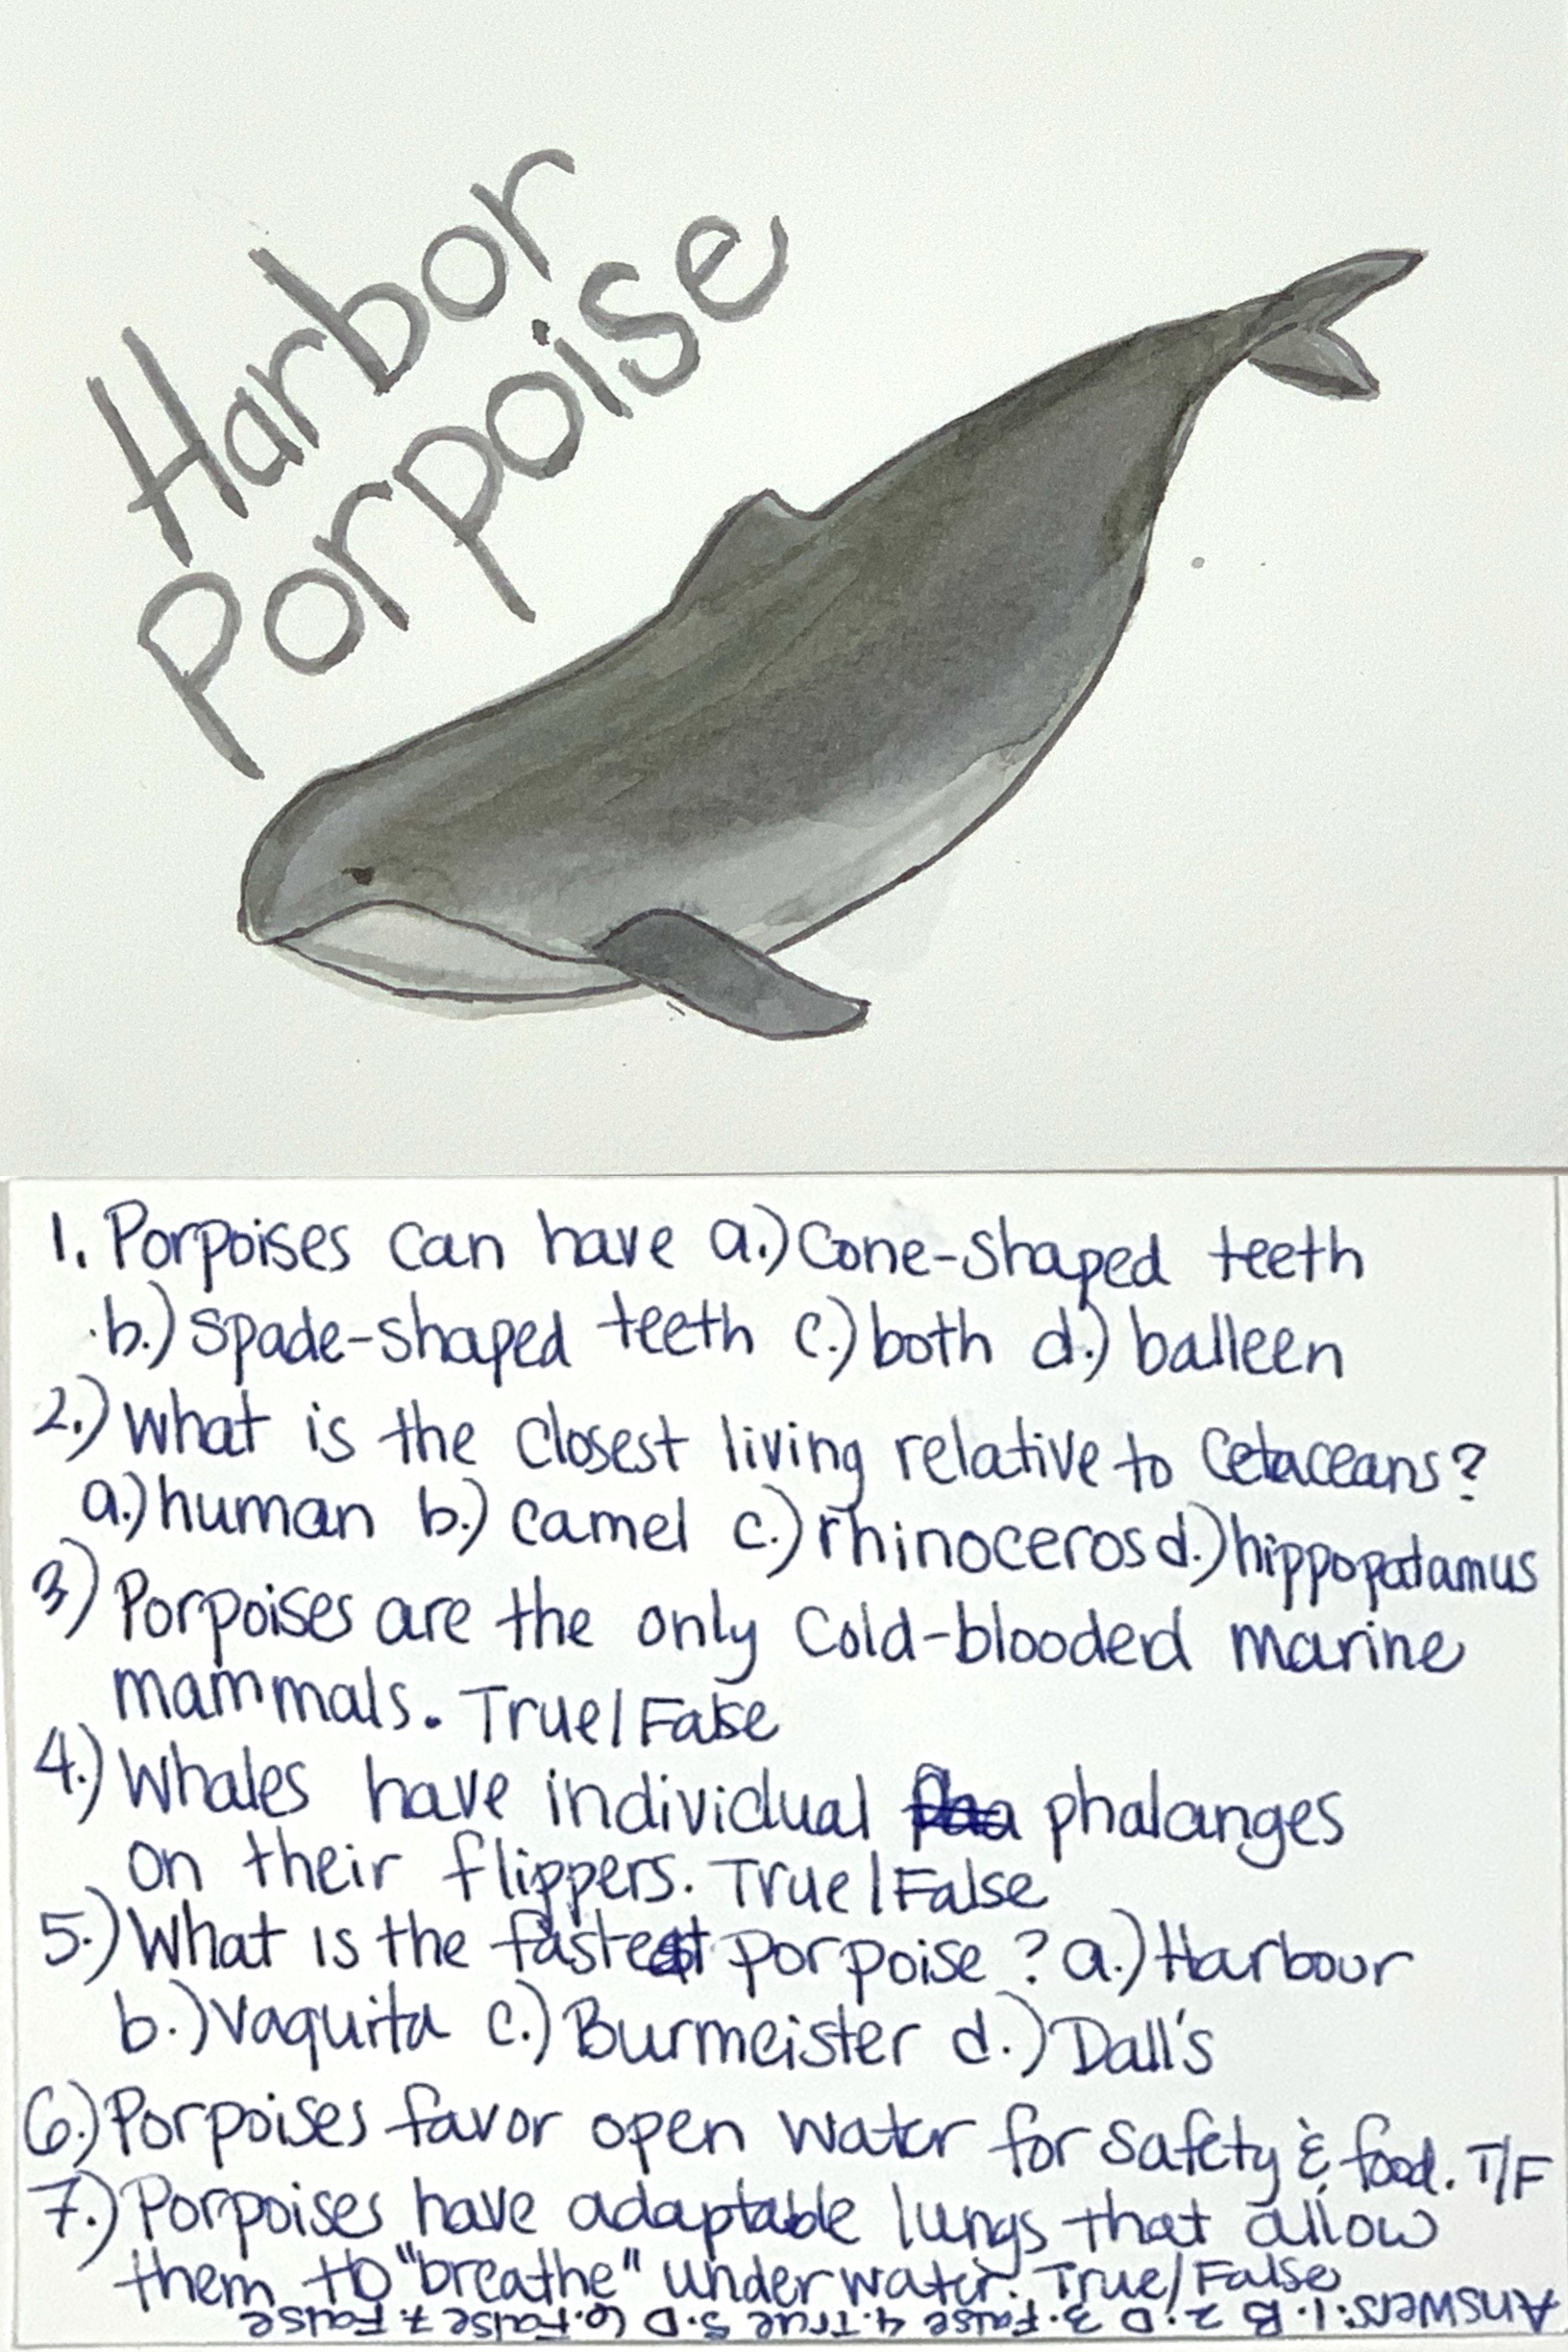 Harbor
Porpoise
1. Porpoises can have a.) Cone-shaped teeth
b.) spade-shaped teeth c.) both d.) balleen
2.) What is the closest living relative to Cetaceans?
a.) human b.) camel c.) rhinoceros d.) hippopotamus
3) Porpoises are the only cold-blooded marine
mammals. True/False
4.) Whales have individual phalanges
on their flippers. True/False
5.) What is the fastest porpoise? a.) Harbour
b.) Vaquita c.) Burmeister d.) Dall's
6.) Porpoises favor open water for safety & food. T/F
7.) Porpoises have adaptable lungs that allow
them to "breathe" underwater. True/False
Answers: 1. B 2. D 3. False 4. True 5. D 6. False 7. False